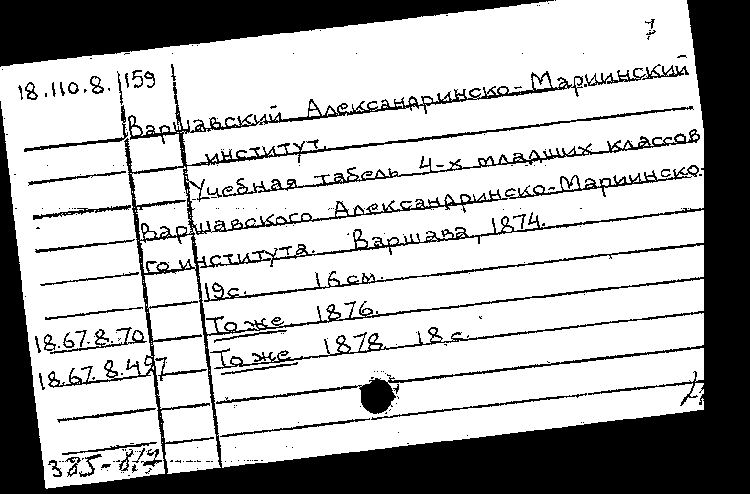 7
18.110.8. 159
Варшавский Александринско-Мариинский
институт.
Учебная табель 4-х младших классов
Варшавского Александринско-Мариинско-
го института. Варшава, 1874.
19 с. 16 см.
18.67.8.70 То же 1876.
18.67.8.497 То же 1878 18 с.
385-8/7